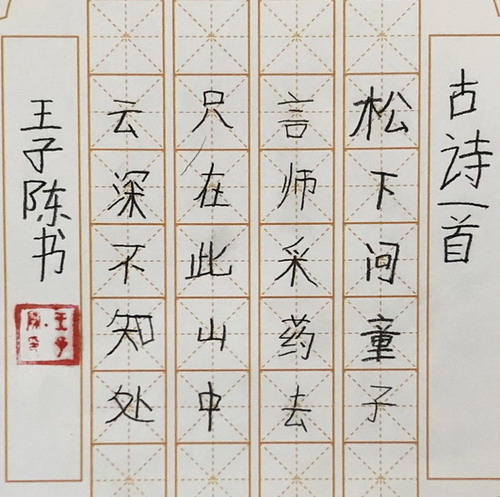 古诗一首
松下问童子
言师采药去
只在此山中
云深不知处
王子陈书